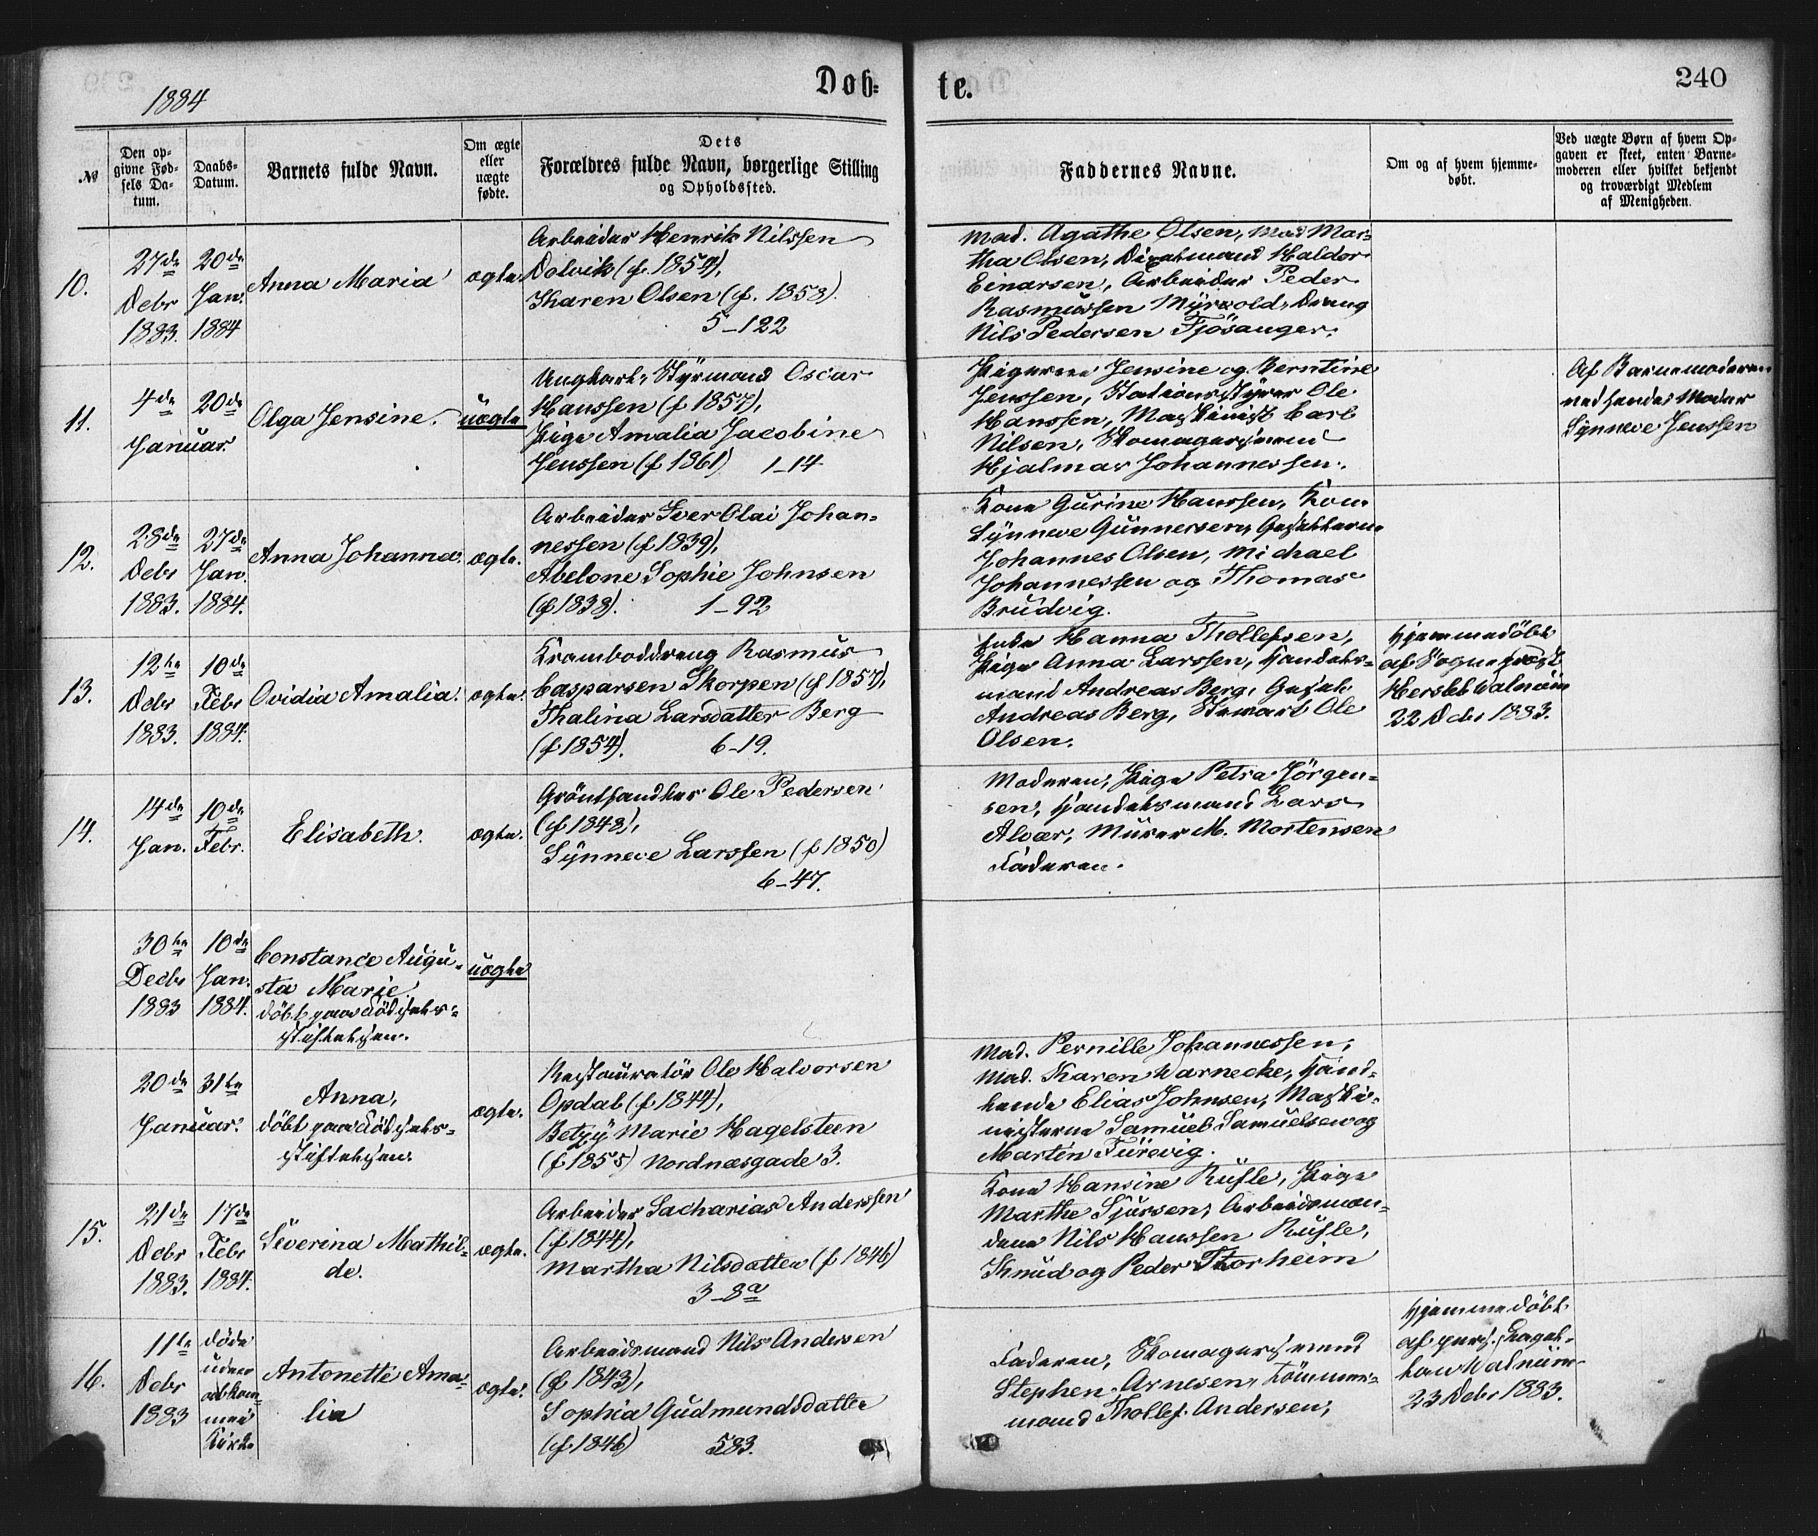 1884
Døb-
te.
240
№
Den op-
givne Fød-
sels Da-
tum.
Daabs-
Datum.
Barnets fulde Navn.
Om ægte
eller
uægte
fødte.
Dets
Forældres fulde Navn, borgerlige Stilling
og Opholdssted.
Faddernes Navne.
Om og af hvem hjemme-
døbt.
Ved uægte Børn af hvem Op-
gaven er skeet, enten Barne-
moderen eller hvilket bekjendt
og troværdigt Medlem
af Menigheden.
10.
27de
Debr
1883.
20de
Jan.
1884
Anna Maria
ægte.
Arbeider Henrik Nilssen
Dolvik (f. 1854),
Karen Olsen (f. 1858).
5-122
Mad. Agathe Olsen, Mad Mar-
tha Olsen, Haldor
Einarsen, Arbeider Peder
Rasmussen Myrvold, Dreng
Nils Pedersen Fjösanger.
11.
4de
20de
Januar.
Olga Jensine.
uægte
Ungkarl, Styrmand Oscar
Hanssen (f 1857),
Pige Amalia Jacobine
Jenssen (f 1861) 1-14
Pigerne Jensine og Berntine
Jenssen, Ole
Hanssen, Maskinist Carl
Nilsen, Skomagersvend
Hjalmar Johannessen.
Af Barnemoderen
ved hendes Moder
Synneve Jenssen
12.
28de
Debr
1883.
27de
Jan.
1884.
Anna Johanna.
ægte.
Arbeider Iver Olai Johan-
nessen (f 1839),
Abelone Sophie Johnsen
(f 1838). 1-92
Kone Gurine Hanssen, Kone
Synneve Gunnersen,
Johannes Olsen, Michael
Johannessen og Thomas
Brudvig.
13.
12te
Debr
1883.
10de
Febr
1884.
Ovidia Amalia.
ægte.
Kramboddreng Rasmus
Casparsen Skorpen (f 1857),
Thalina Larsdatter Berg
(f 1854). 6-19.
Enke Hanna Thollefsen,
Pige Anna Larssen, Handels-
mand Andreas Berg,
Andreas Berg, Stewart Ole
Olsen.
Hjemmedöbt
af Sogneprest
Walnum
22 Debr 1883.
14.
14de
Jan.
10de
Febr.
Elisabeth.
ægte.
Grönthandler Ole Pedersen
(f 1848),
Synneve Larssen (f 1850)
6-47.
Moderen, Pige Petra Jörgen-
sen, Handelsmand Lars
Alvær, Murer M. Mortensen
Faderen.
30te
Decbr
1883
10de
Jan.
1884.
Constance Augu-
sta Marie
döbt paa Födsels-
stiftelsen.
uægte
20de
31te
Januar.
Anna,
döbt paa Födsels-
stiftelsen.
ægte.
Restauratör Ole Halvorsen
Opdal (f 1844),
Betzy Marie Hagelsteen
(f. 1855) Nordnæsgade 3.
Mad. Pernille Johannessen,
Mad. Karen Warnecke, Hand-
lende Elias Johnsen, Maski-
nisterne Samuel Samuelsen og
Martin Fürevig.
15.
21de
Debr
1883.
17de
Febr
1884.
Severina Mathil-
de.
ægte.
Arbeider Sacharias Anderssen
(f 1844),
Martha Nilsdatter (f 1846)
3-8a
Kone Hansine Rusle, Pige
Marthe Sjursen, Arbeidsmæn-
dene Nils Hanssen Rusle,
Knud og Peder Thorheim
16.
11te
Debr
1883
döde
uden
at kom-
me i
Kirke
Antonette Ama-
lia
ægte.
Arbeidsmand Nils Andersen
(f 1843),
Sophia Gudmundsdatter
(f. 1846) 583.
Faderen, Skomagersvend
Stephen Arnesen, Tömmer-
mand Thollef Andersen,
Hjemmedöbt
af pers. Kapel-
lan Walnum
23 Debr 1883.